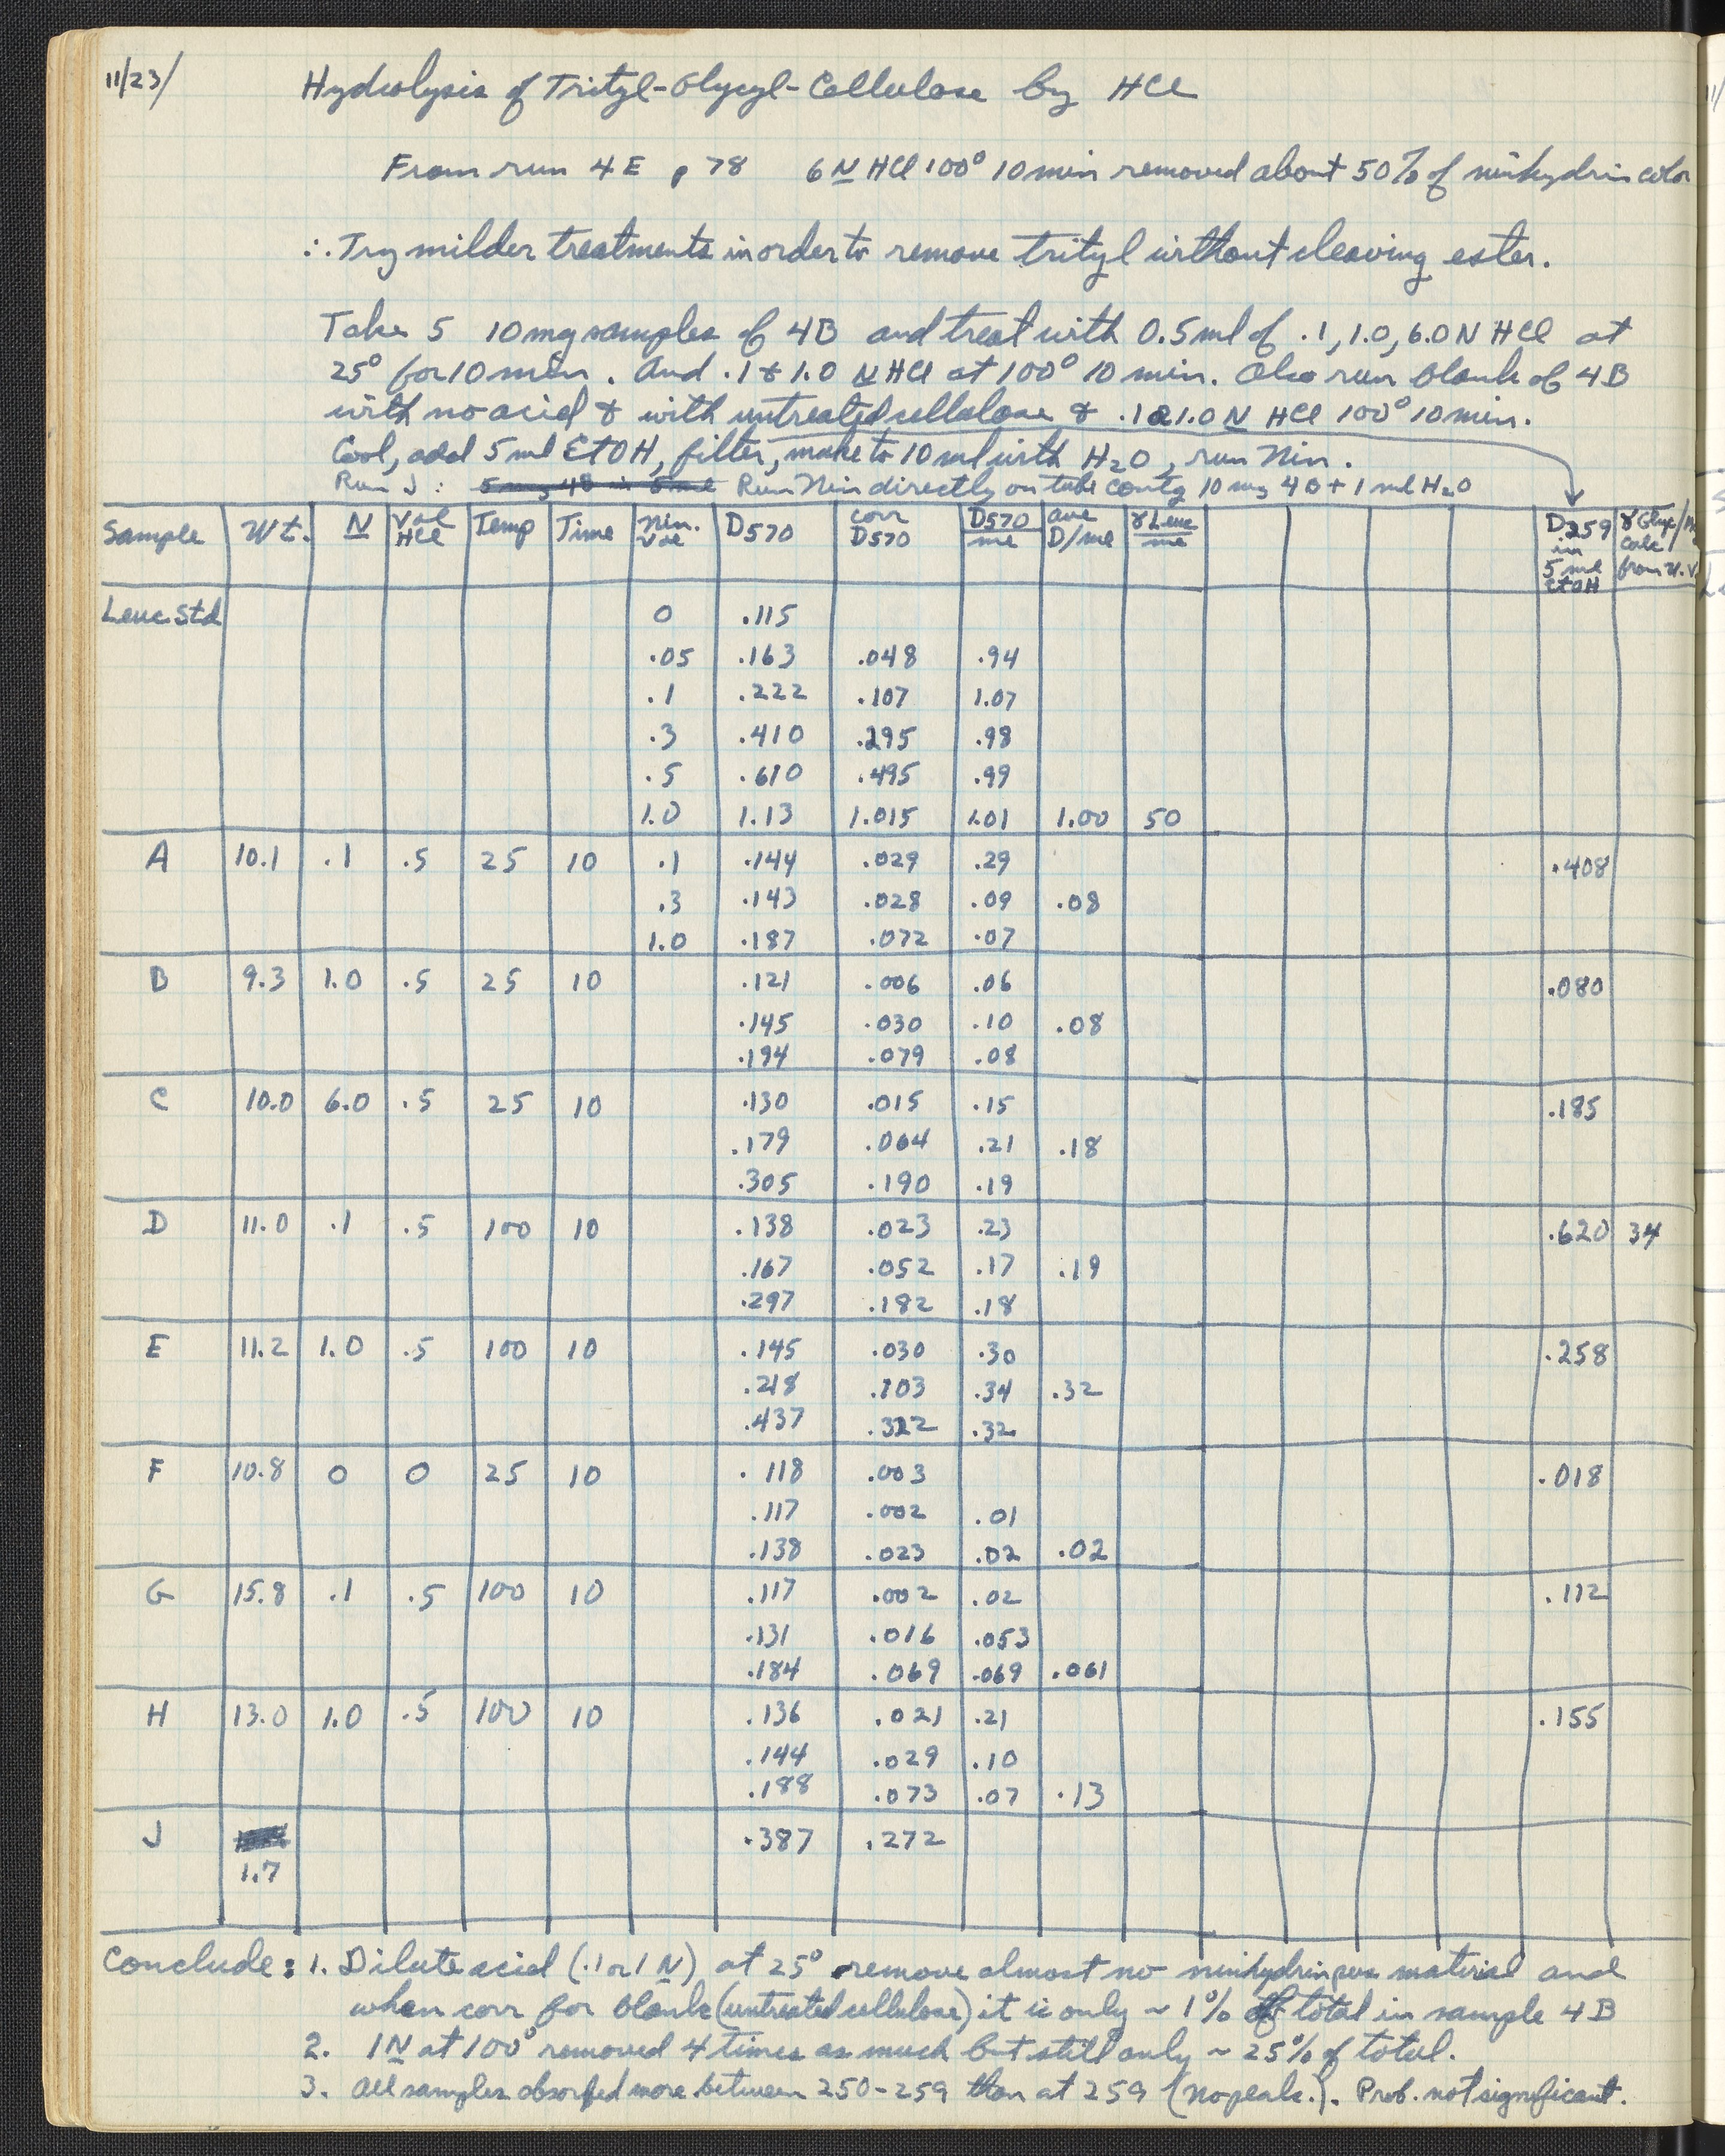 11/23/ Hydrolysis of Trityl-Glycyl-Cellulose by HCl
From run 4E p 78 6N HCl 100° 10 min removed about 50% of ninhydrin color
∴ Try milder treatments in order to remove trityl without cleaving ester.
Take 5 10 mg samples of 4B and treat with 0.5 ml of .1, 1.0, 6.0 N HCl at
25° for 10 min. And .1 & 1.0 N HCl at 100° 10 min. Also run blank of 4B
with no acid & with untreated cellulose & .1 & 1.0 N HCl 100° 10 min.
Cool, add 5 ml EtOH, filter, make to 10 ml with H2O, run Nin.
Run J: Run Nin directly on tube contg 10 mg 4B + 1 ml H2O
Sample Wt. N Vol HCl Temp Time Nin. Vol D570 corr D570 D570/ml ave D/ml γ Leuc/ml D259 in 5 ml EtOH γ Glyc/ calc from U.V.
Leuc. Std 0 .115
.05 .163 .048 .94
.1 .222 .107 1.07
.3 .410 .295 .98
.5 .610 .495 .99
1.0 1.13 1.015 1.01 1.00 50
A 10.1 .1 .5 25 10 .1 .144 .029 .29 .408
.3 .143 .028 .09 .08
1.0 .187 .072 .07
B 9.3 1.0 .5 25 10 .121 .006 .06 .080
.145 .030 .10 .08
.194 .079 .08
C 10.0 6.0 .5 25 10 .130 .015 .15 .185
.179 .064 .21 .18
.305 .190 .19
D 11.0 .1 .5 100 10 .138 .023 .23 .620 34
.167 .052 .17 .19
.297 .182 .18
E 11.2 1.0 .5 100 10 .145 .030 .30 .258
.218 .103 .34 .32
.437 .322 .32
F 10.8 0 0 25 10 .118 .003 .018
.117 .002 .01
.138 .023 .02 .02
G 15.8 .1 .5 100 10 .117 .002 .02 .112
.131 .016 .053
.184 .069 .069 .061
H 13.0 1.0 .5 100 10 .136 .021 .21 .155
.144 .029 .10
.188 .073 .07 .13
J .387 .272
1.7
Conclude: 1. Dilute acid (.1 or 1 N) at 25° remove almost no ninhydrin pos material and
when corr for blank (untreated cellulose) it is only ~ 1% of total in sample 4B
2. 1N at 100° removed 4 times as much but still only ~ 25% of total.
3. All samples absorbed more between 250-259 than at 259 (No peak.). Prob. not significant.